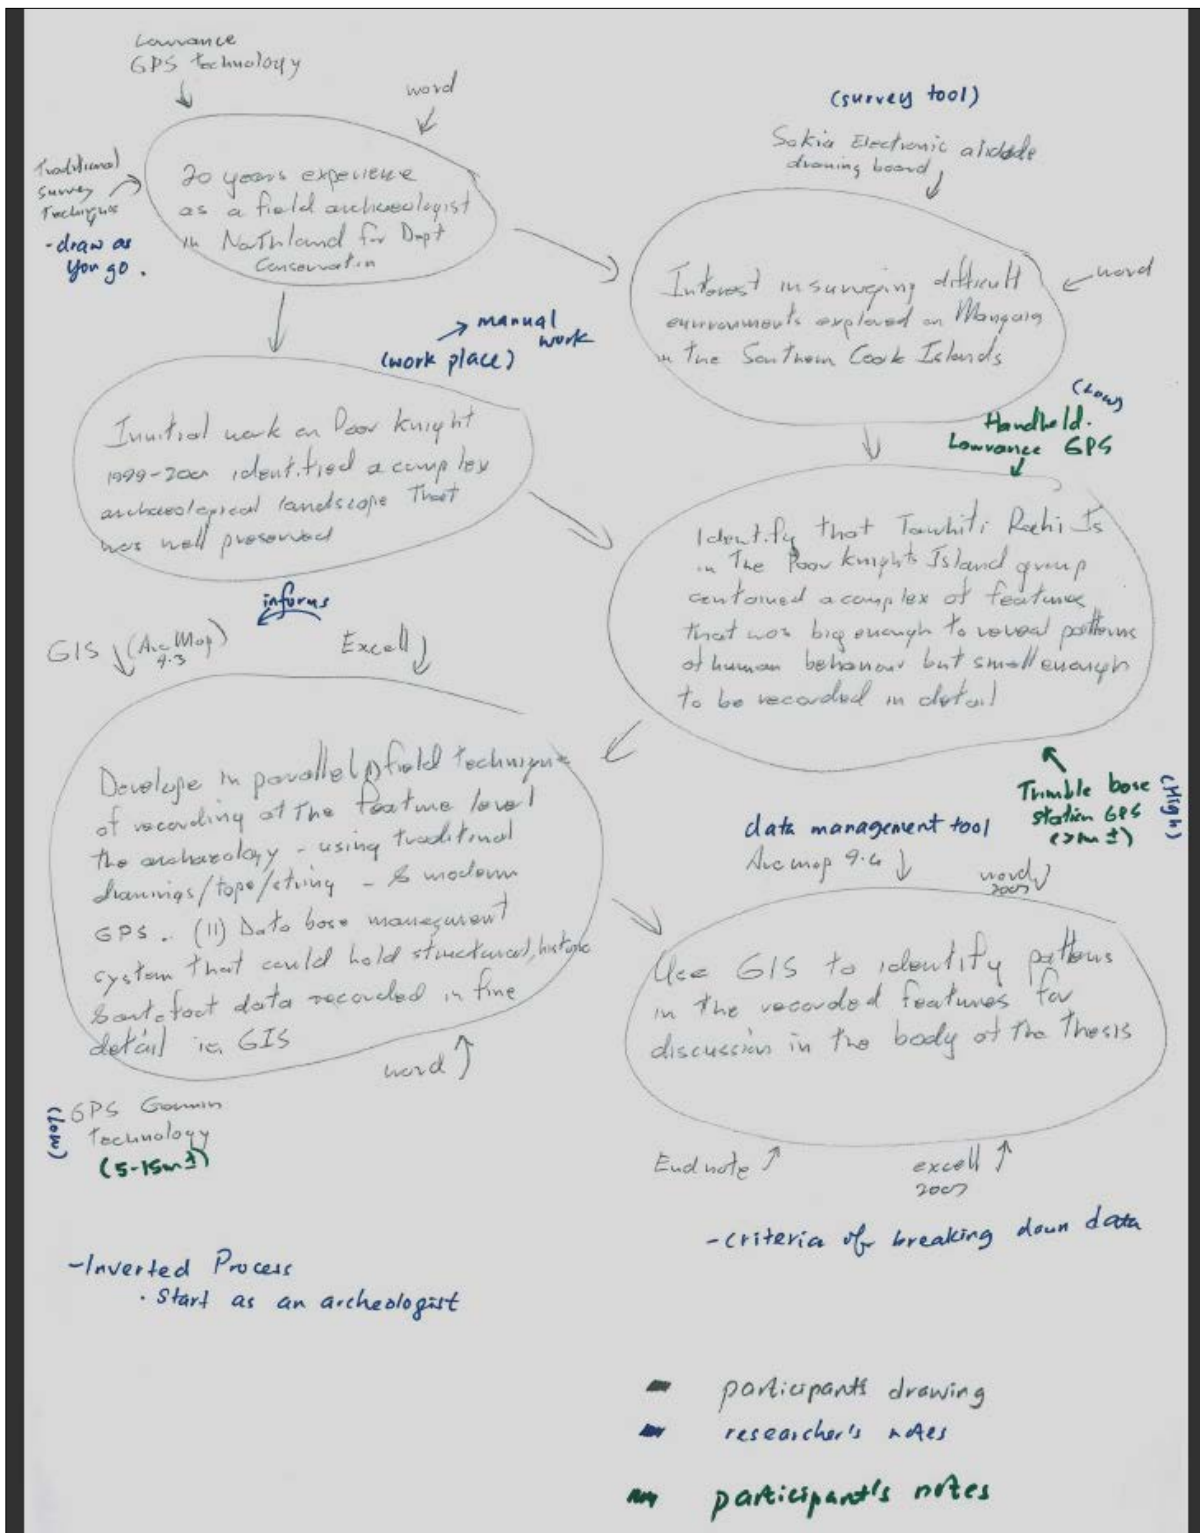 Lowrance
GPS technology
word
Traditional
Survey
Techniques
-draw as
you go.
20 years experience
as a field archaeologist
in Northland for Dept
Conservatin
(survey tool)
Sokia Electronic alidade
drawing board
Interest in surveying difficult
environments explored on Mangaia
in the Southern Cook Islands
word
manual
work
(work place)
Innitial work on Poor Knight
1999-2001 identified a complex
archaeological landscape that
was well preserved
(Low)
Handheld.
Lowrance GPS
Identify that Tawhiti Rahi Is
in The Poor Knights Island group
contained a complex of features
that was big enough to reveal patterns
of human behaviour but small enough
to be recorded in detail
informs
GIS (ArcMap)
9.3
Excell
Develope in parallel (1) field technique
of recording at the feature level
the archaeology - using traditional
drawings/tape/string - & modern
GPS. (11) Data base managment
system that could hold structural, historic
& artefact data recorded in fine
detail ie. GIS
word
Trimble base
station GPS
(>1m ±)
(High)
data management tool
Arc map 9.4
word
2007
Use GIS to identify patterns
in the recorded features for
discussion in the body of the thesis
(low)
GPS Garmin
technology
(5-15m ±)
Endnote
excell
2007
-criteria of breaking down data
-Inverted Process
· Start as an archeologist
participants drawing
researcher's notes
participant's notes